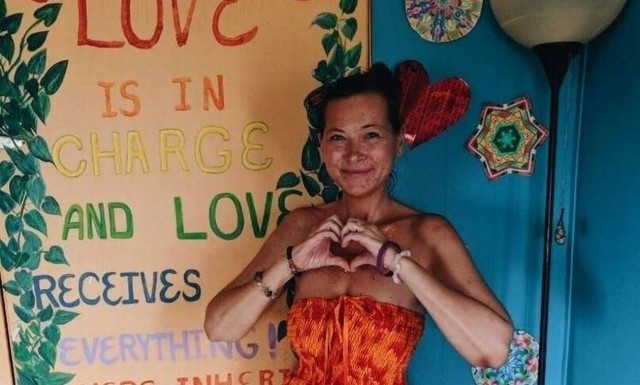 LOVE
IS IN
CHARGE
AND LOVE
RECEIVES
EVERYTHING!